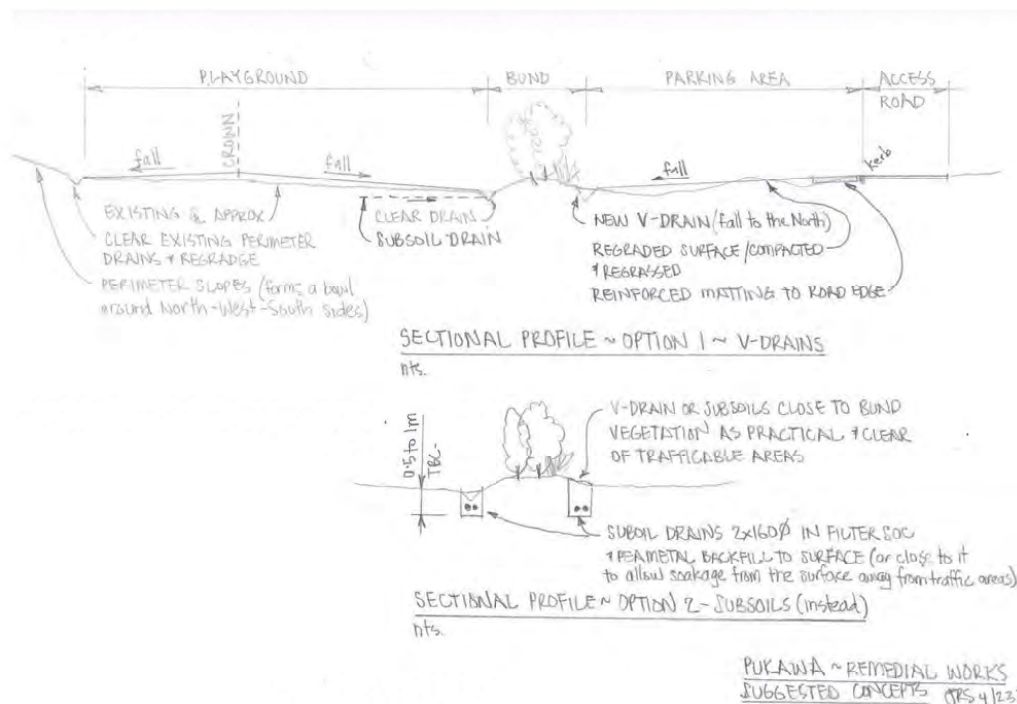 PLAYGROUND
BUND
PARKING AREA
ACCESS
ROAD
CROWN
fall
fall
fall
kerb
EXISTING GL APPROX
CLEAR EXISTING PERIMETER
DRAINS & REGRADGE
PERIMETER SLOPES (forms a bowl
around North-West-South sides)
CLEAR DRAIN
SUBSOIL DRAIN
NEW V-DRAIN (fall to the North)
REGRADED SURFACE/COMPACTED
& REGRASSED
REINFORCED MATTING TO ROAD EDGE
SECTIONAL PROFILE ~ OPTION 1 ~ V-DRAINS
nts.
0.5 to 1m
TBC-
V-DRAIN OR SUBSOILS CLOSE TO BUND
VEGETATION AS PRACTICAL & CLEAR
OF TRAFFICABLE AREAS
SUBOIL DRAINS 2x160Ø IN FILTER SOC
& PEAMETAL BACKFILL TO SURFACE (or close to it
to allow soakage from the surface away from traffic areas)
SECTIONAL PROFILE ~ OPTION 2 - SUBSOILS (instead)
nts.
PUKAWA ~ REMEDIAL WORKS
SUGGESTED CONCEPTS 4/23